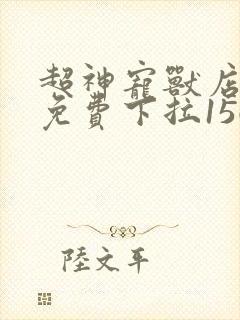 超神寵獸店
免費下拉15
陸文平